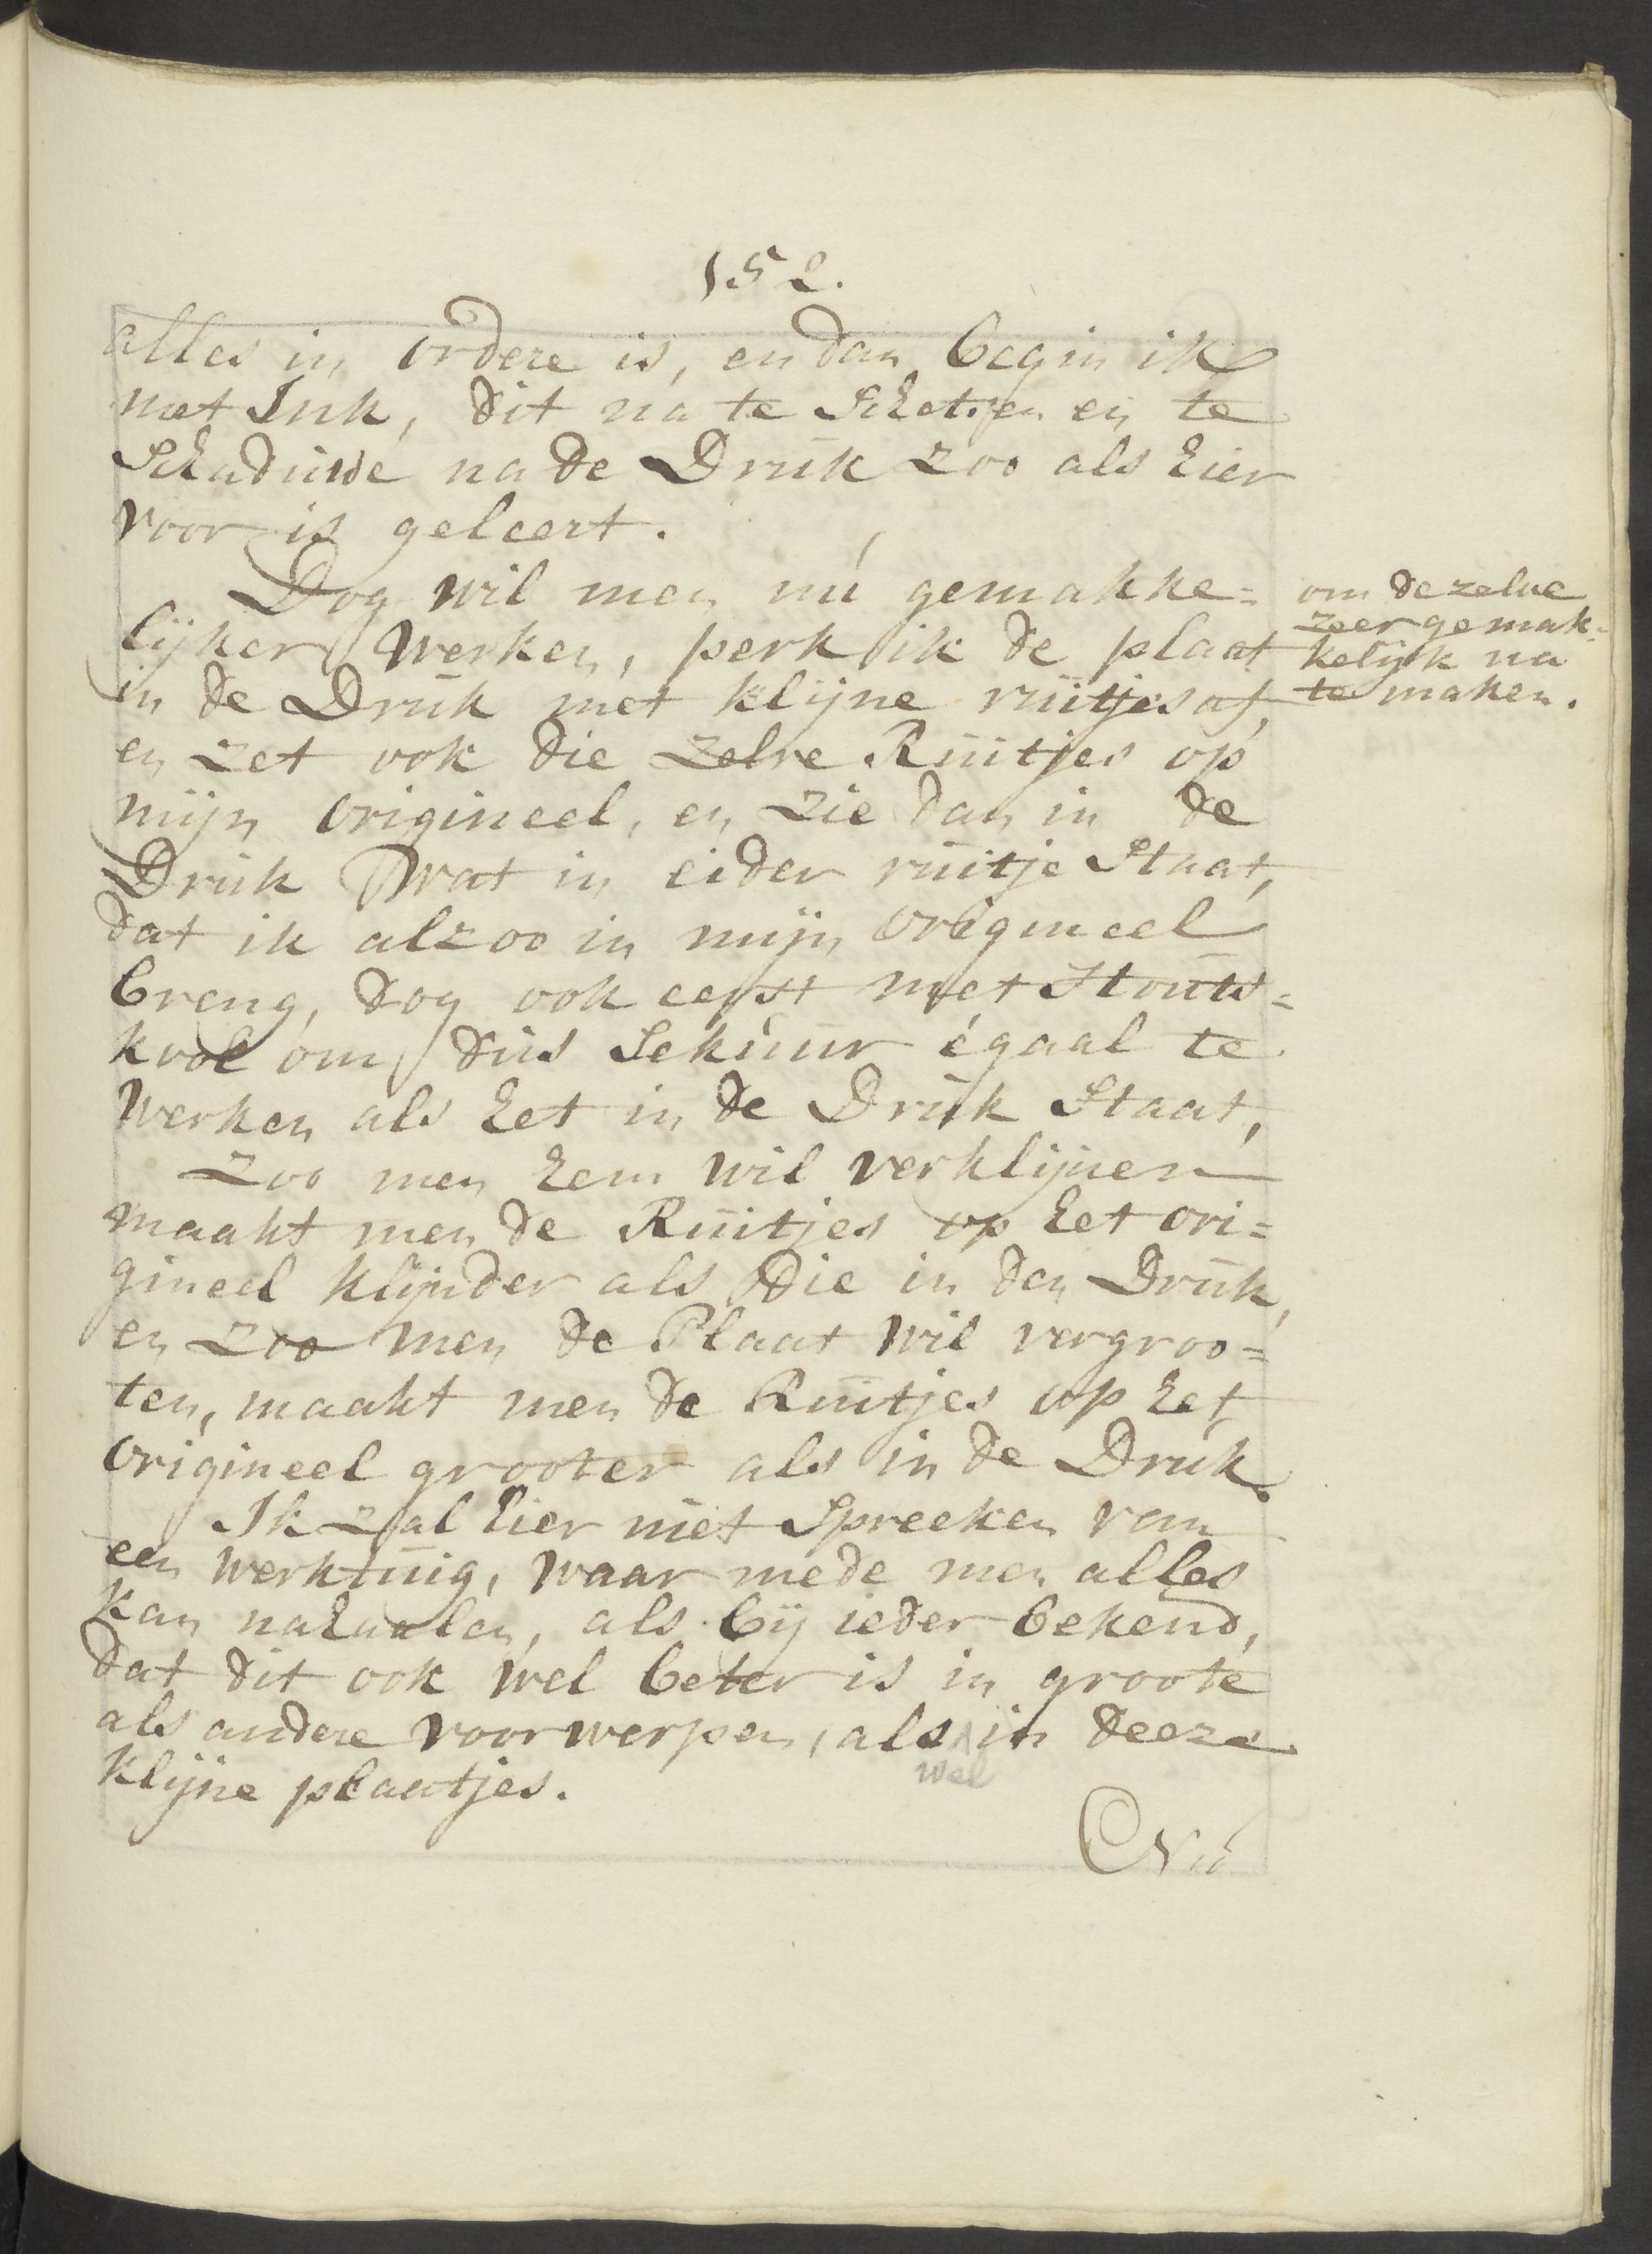 152.
alles in ordere is, en dan begin ik
met Ink, dit na te Schetsen en te
Schaduwe na de Druk zoo als hier
voor is geleert.
Dog wil men nú gemakke=
lijker werken, perk ik de plaat
in de Druk met klijne ruitjes af,
en zet ook die zelve Ruitjes op
mijn origineel, en zie dan in de
Druk wat in eider ruitje Staat,
dat ik alzoo in mijn origineel
breng, dog ook eerst met Houts=
kool om dus Sekuur égaal te
werken als het in de Druk Staat,
zoo men hem wil verklijnen
maakt men de Ruitjes op het ori=
gineel klijnder als die in den Druk,
en zoo men de Plaat wil vergroo=
ten, maakt men de Ruitjes op het
origineel grooter als in de Druk.
Ik zal hier niet Spreeken van
een werktuig, waar mede men alles
kan nahaalen, als bij ieder bekend,
dat dit ook wel beter is in groote
als andere voorwerpen, als in deeze
wel
klijne plaatjes.
Nú
om dezelve
zeer gemak=
kelijk na
te maken.